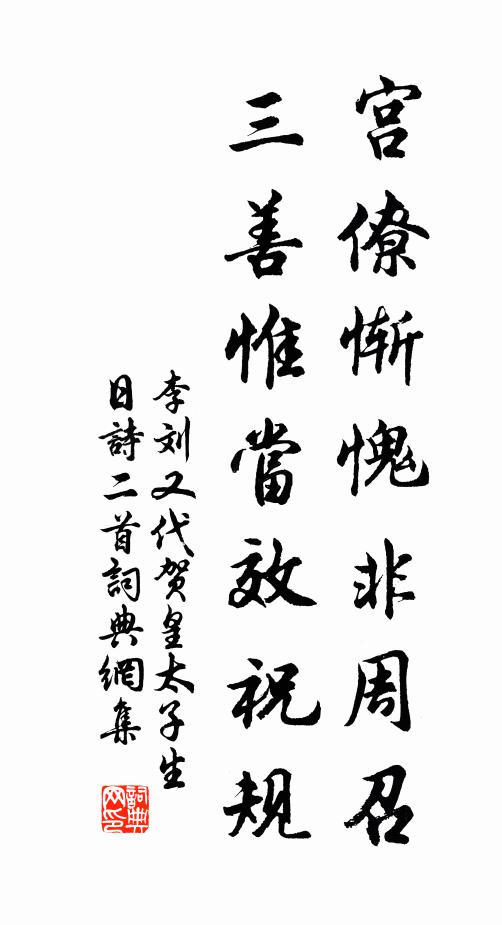 宫僚惭愧非周召
三善惟當效祝規
李刘又代贺皇太子生
日詩二首詞典網集
詞典网印